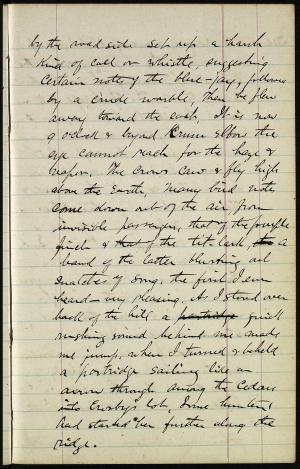 by the road side set up a harsh
kind of call or whistle, suggesting
certain notes of the blue-jay, followed
by a crude warble, then he flew
away toward the east. It is now
9 o'clock & beyond Crum Elbow the
eye cannot reach for the haze &
vapor. The crows caw & fly high
above the earth, many bird notes
come down out of the air from
invisible passengers, that of the purple
finch & that of the tit-lark, the a
band of the latter blurting out
snatches of song, the first I ever
heard - very pleasing. As I stood over
back of the hill a partridge quick
rushing sound behind me made
me jump, when I turned & beheld
a partridge sailing like an
arrow through among the cedars
into Crosby's lot, Some hunters
had started her further along the
ridge.